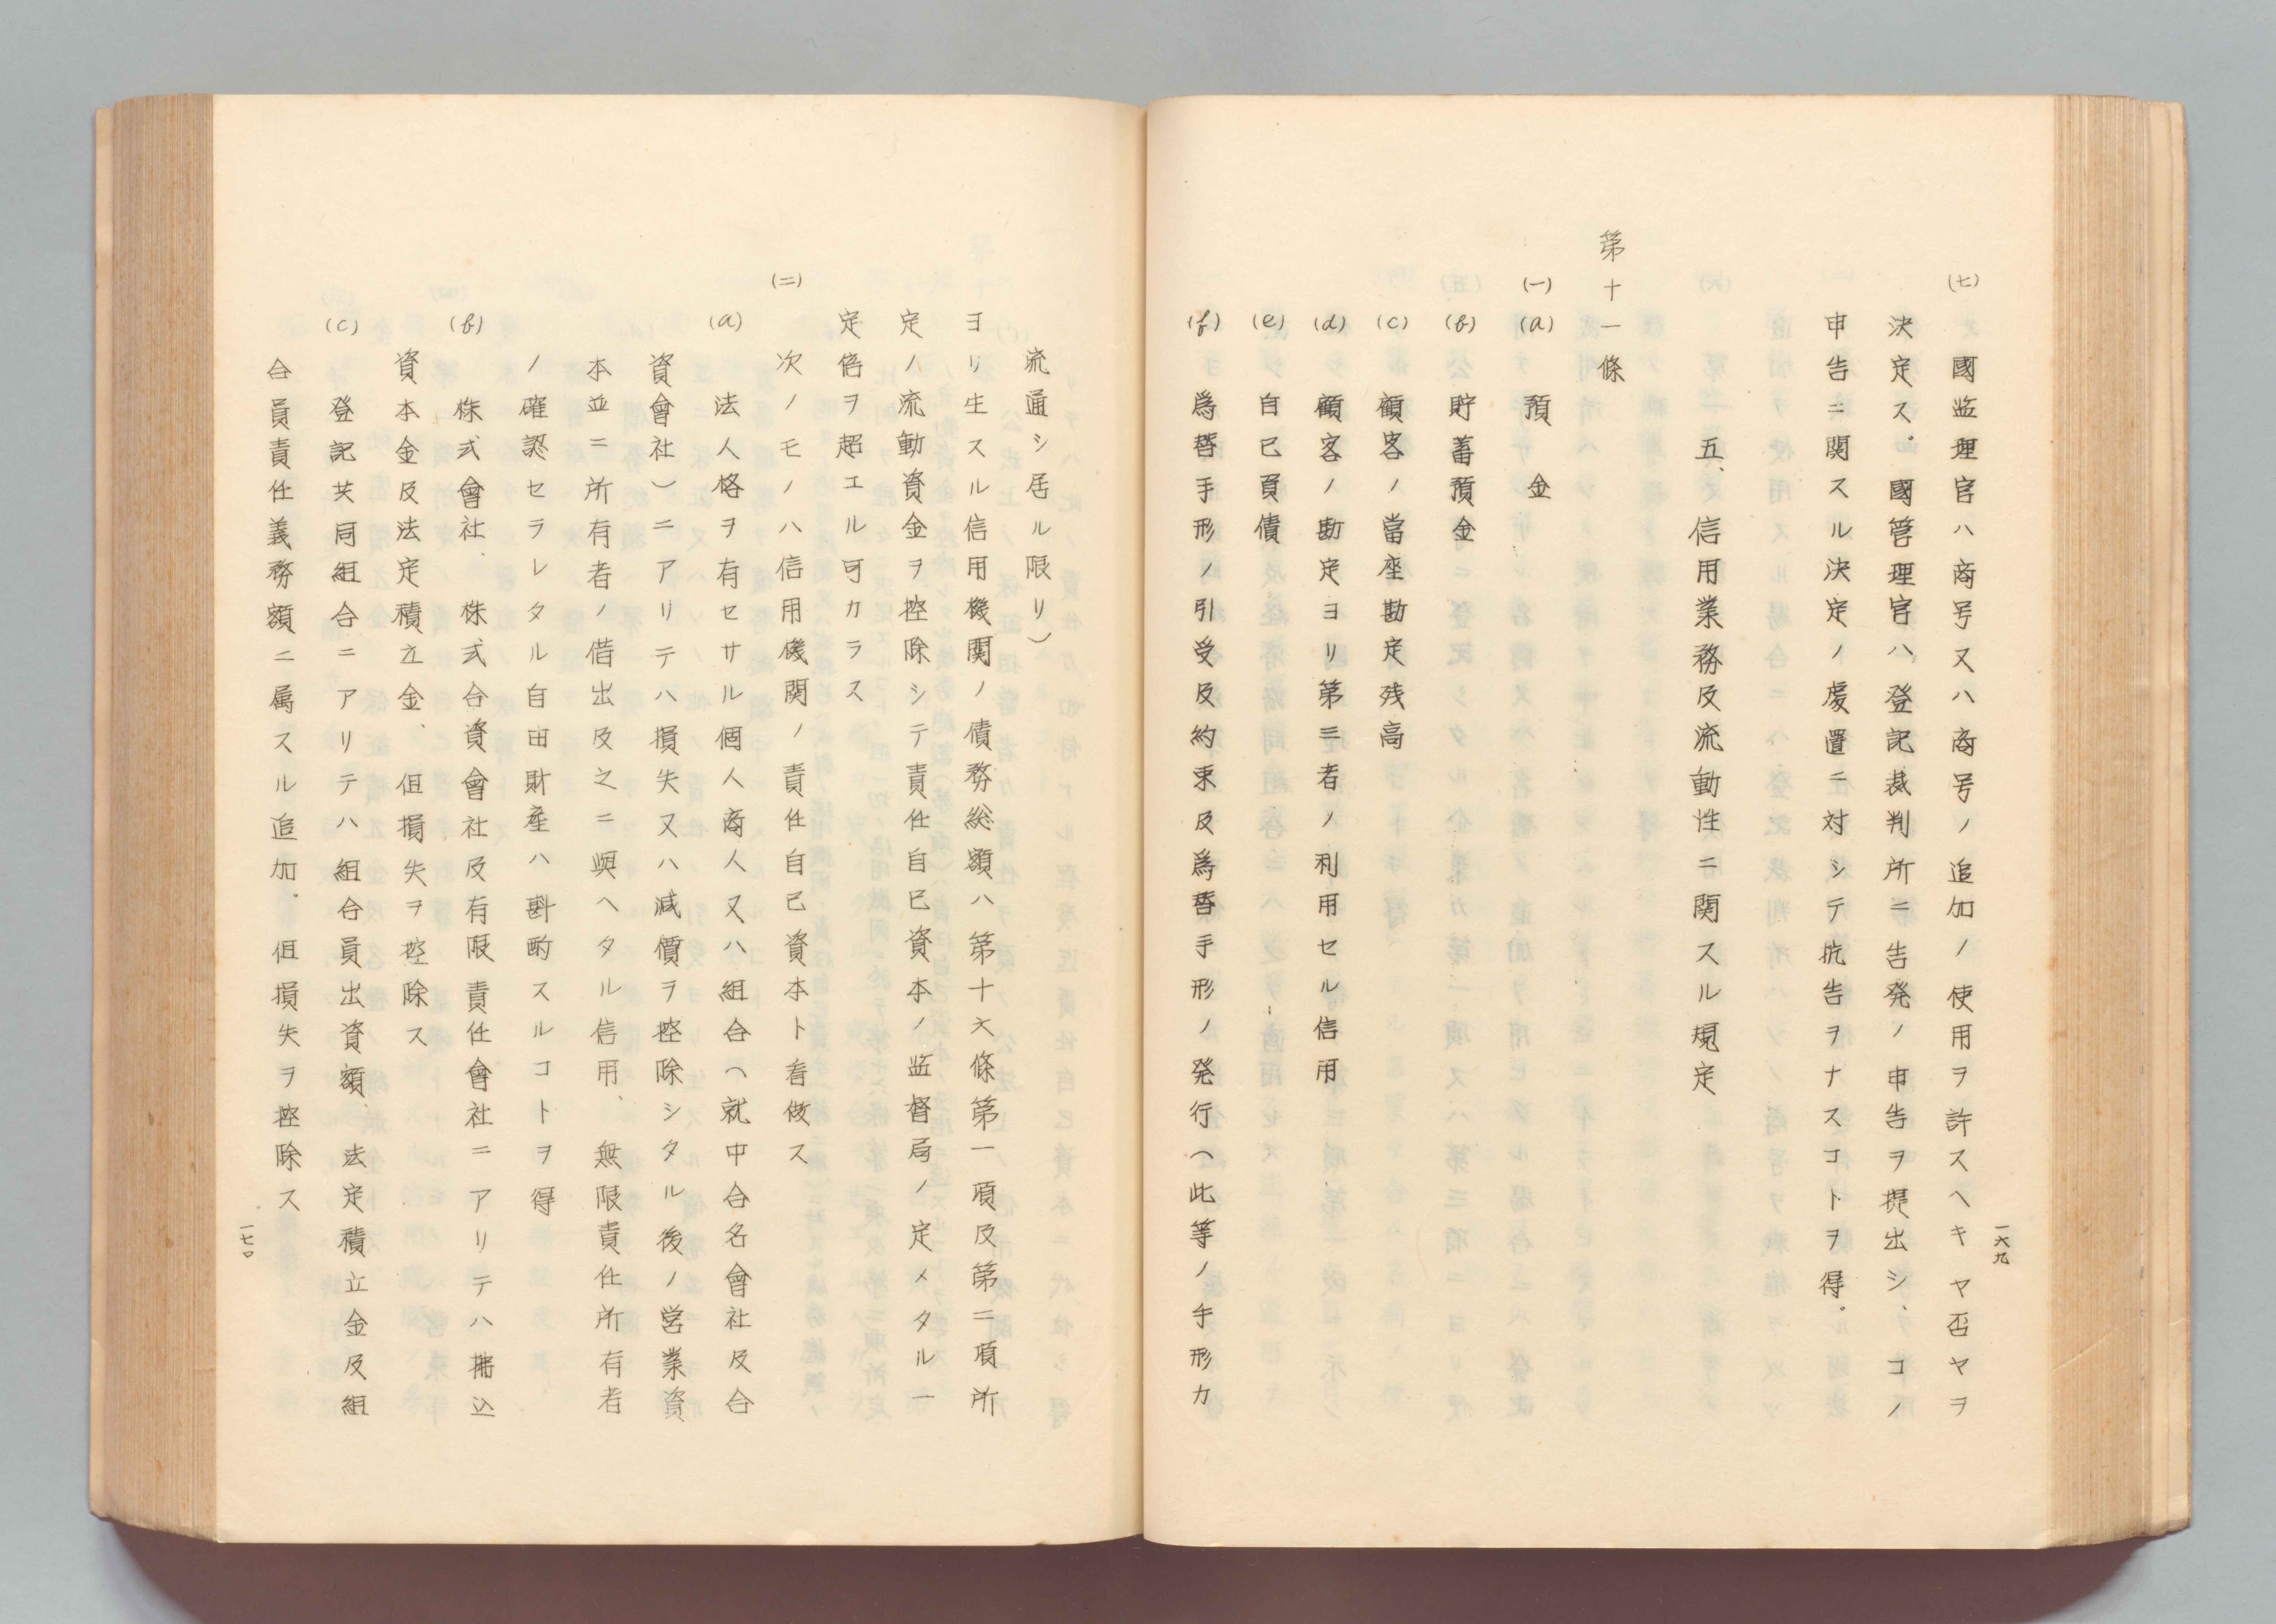 (七) 國監理官ハ商号又ハ商号ノ追加ノ使用ヲ許スヘキヤ否ヤヲ
決定ス。國管理官ハ登記裁判所ニ告発ノ申告ヲ提出シ、コノ
申告ニ関スル決定ノ處置ニ対シテ抗告ヲナスコトヲ得。
五、信用業務及流動性ニ関スル規定
第十一條
(一) (a) 預金
(b) 貯蓄預金
(c) 顧客ノ當座勘定残高
(d) 顧客ノ勘定ヨリ第三者ノ利用セル信用
(e) 自己負債
(f) 為替手形ノ引受及約束及為替手形ノ発行(此等ノ手形カ
一六九
流通シ居ル限リ)
ヨリ生スル信用機関ノ債務総額ハ第十六條第一項及第二項所
定ノ流動資金ヲ控除シテ責任自己資本ノ監督局ノ定メタル一
定倍ヲ超エル可カラス
(二) 次ノモノハ信用機関ノ責任自己資本ト看做ス
(a) 法人格ヲ有セサル個人商人又ハ組合(就中合名會社及合
資會社)ニアリテハ損失又ハ減價ヲ控除シタル後ノ営業資
本並ニ所有者ノ借出及之ニ與ヘタル信用、無限責任所有者
ノ確認セラレタル自由財産ハ斟酌スルコトヲ得
(b) 株式會社、株式合資會社及有限責任會社ニアリテハ拂込
資本金及法定積立金、但損失ヲ控除ス
(c) 登記共同組合ニアリテハ組合員出資額、法定積立金及組
合員責任義務額ニ属スル追加、但損失ヲ控除ス
一七〇